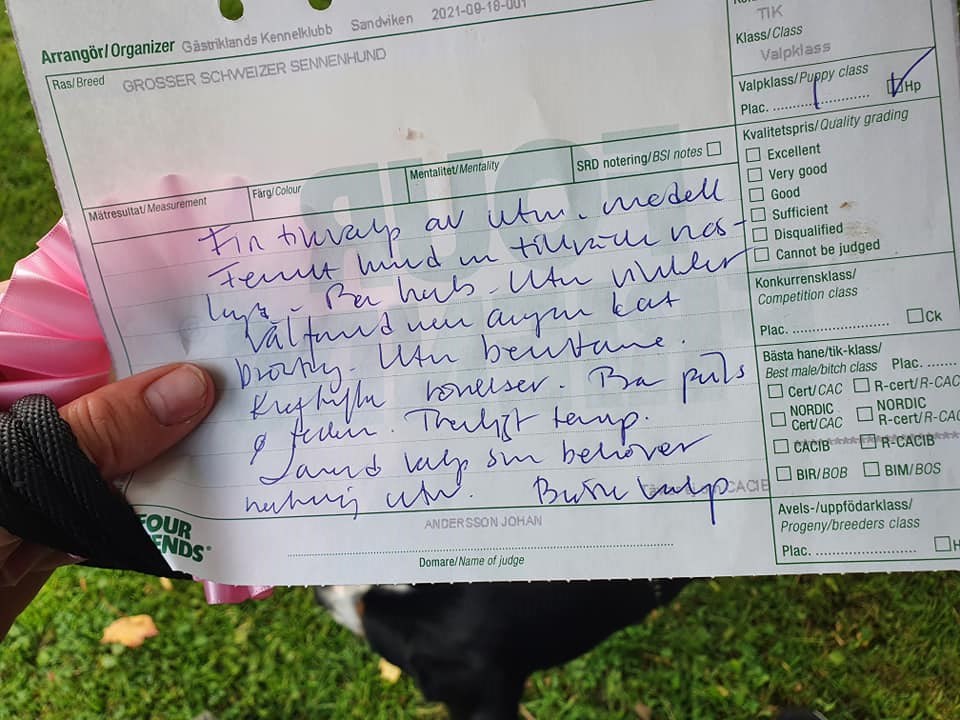 Arrangör/Organizer Gästriklands Kennelklubb Sandviken 2021-09-18-001
TIK
Klass/Class
Valpklass
Ras/Breed GROSSER SCHWEIZER SENNENHUND
Valpklass/Puppy class
Plac. 1 Hp
Kvalitetspris/Quality grading
Excellent
Very good
Good
Sufficient
Disqualified
Cannot be judged
Mätresultat/Measurement
Färg/Colour
Mentalitet/Mentality
SRD notering/BSI notes
Fin tikvalp av utm. modell
hund
Bra hals. Utm vinklar
Välformad men något kort
Utm benstame.
rörelser. Bra päls
& färger. Trevligt temp.
valp som behöver
utm. valp
CACIB
ANDERSSON JOHAN
Domare/Name of judge
FOUR
FRIENDS
Konkurrensklass/
Competition class
Plac. Ck
Bästa hane/tik-klass/
Best male/bitch class Plac.
Cert/CAC R-cert/R-CAC
NORDIC Cert/CAC NORDIC R-cert/R-CAC
CACIB R-CACIB
BIR/BOB BIM/BOS
Avels-/uppfödarklass/
Progeny/breeders class
Plac. H